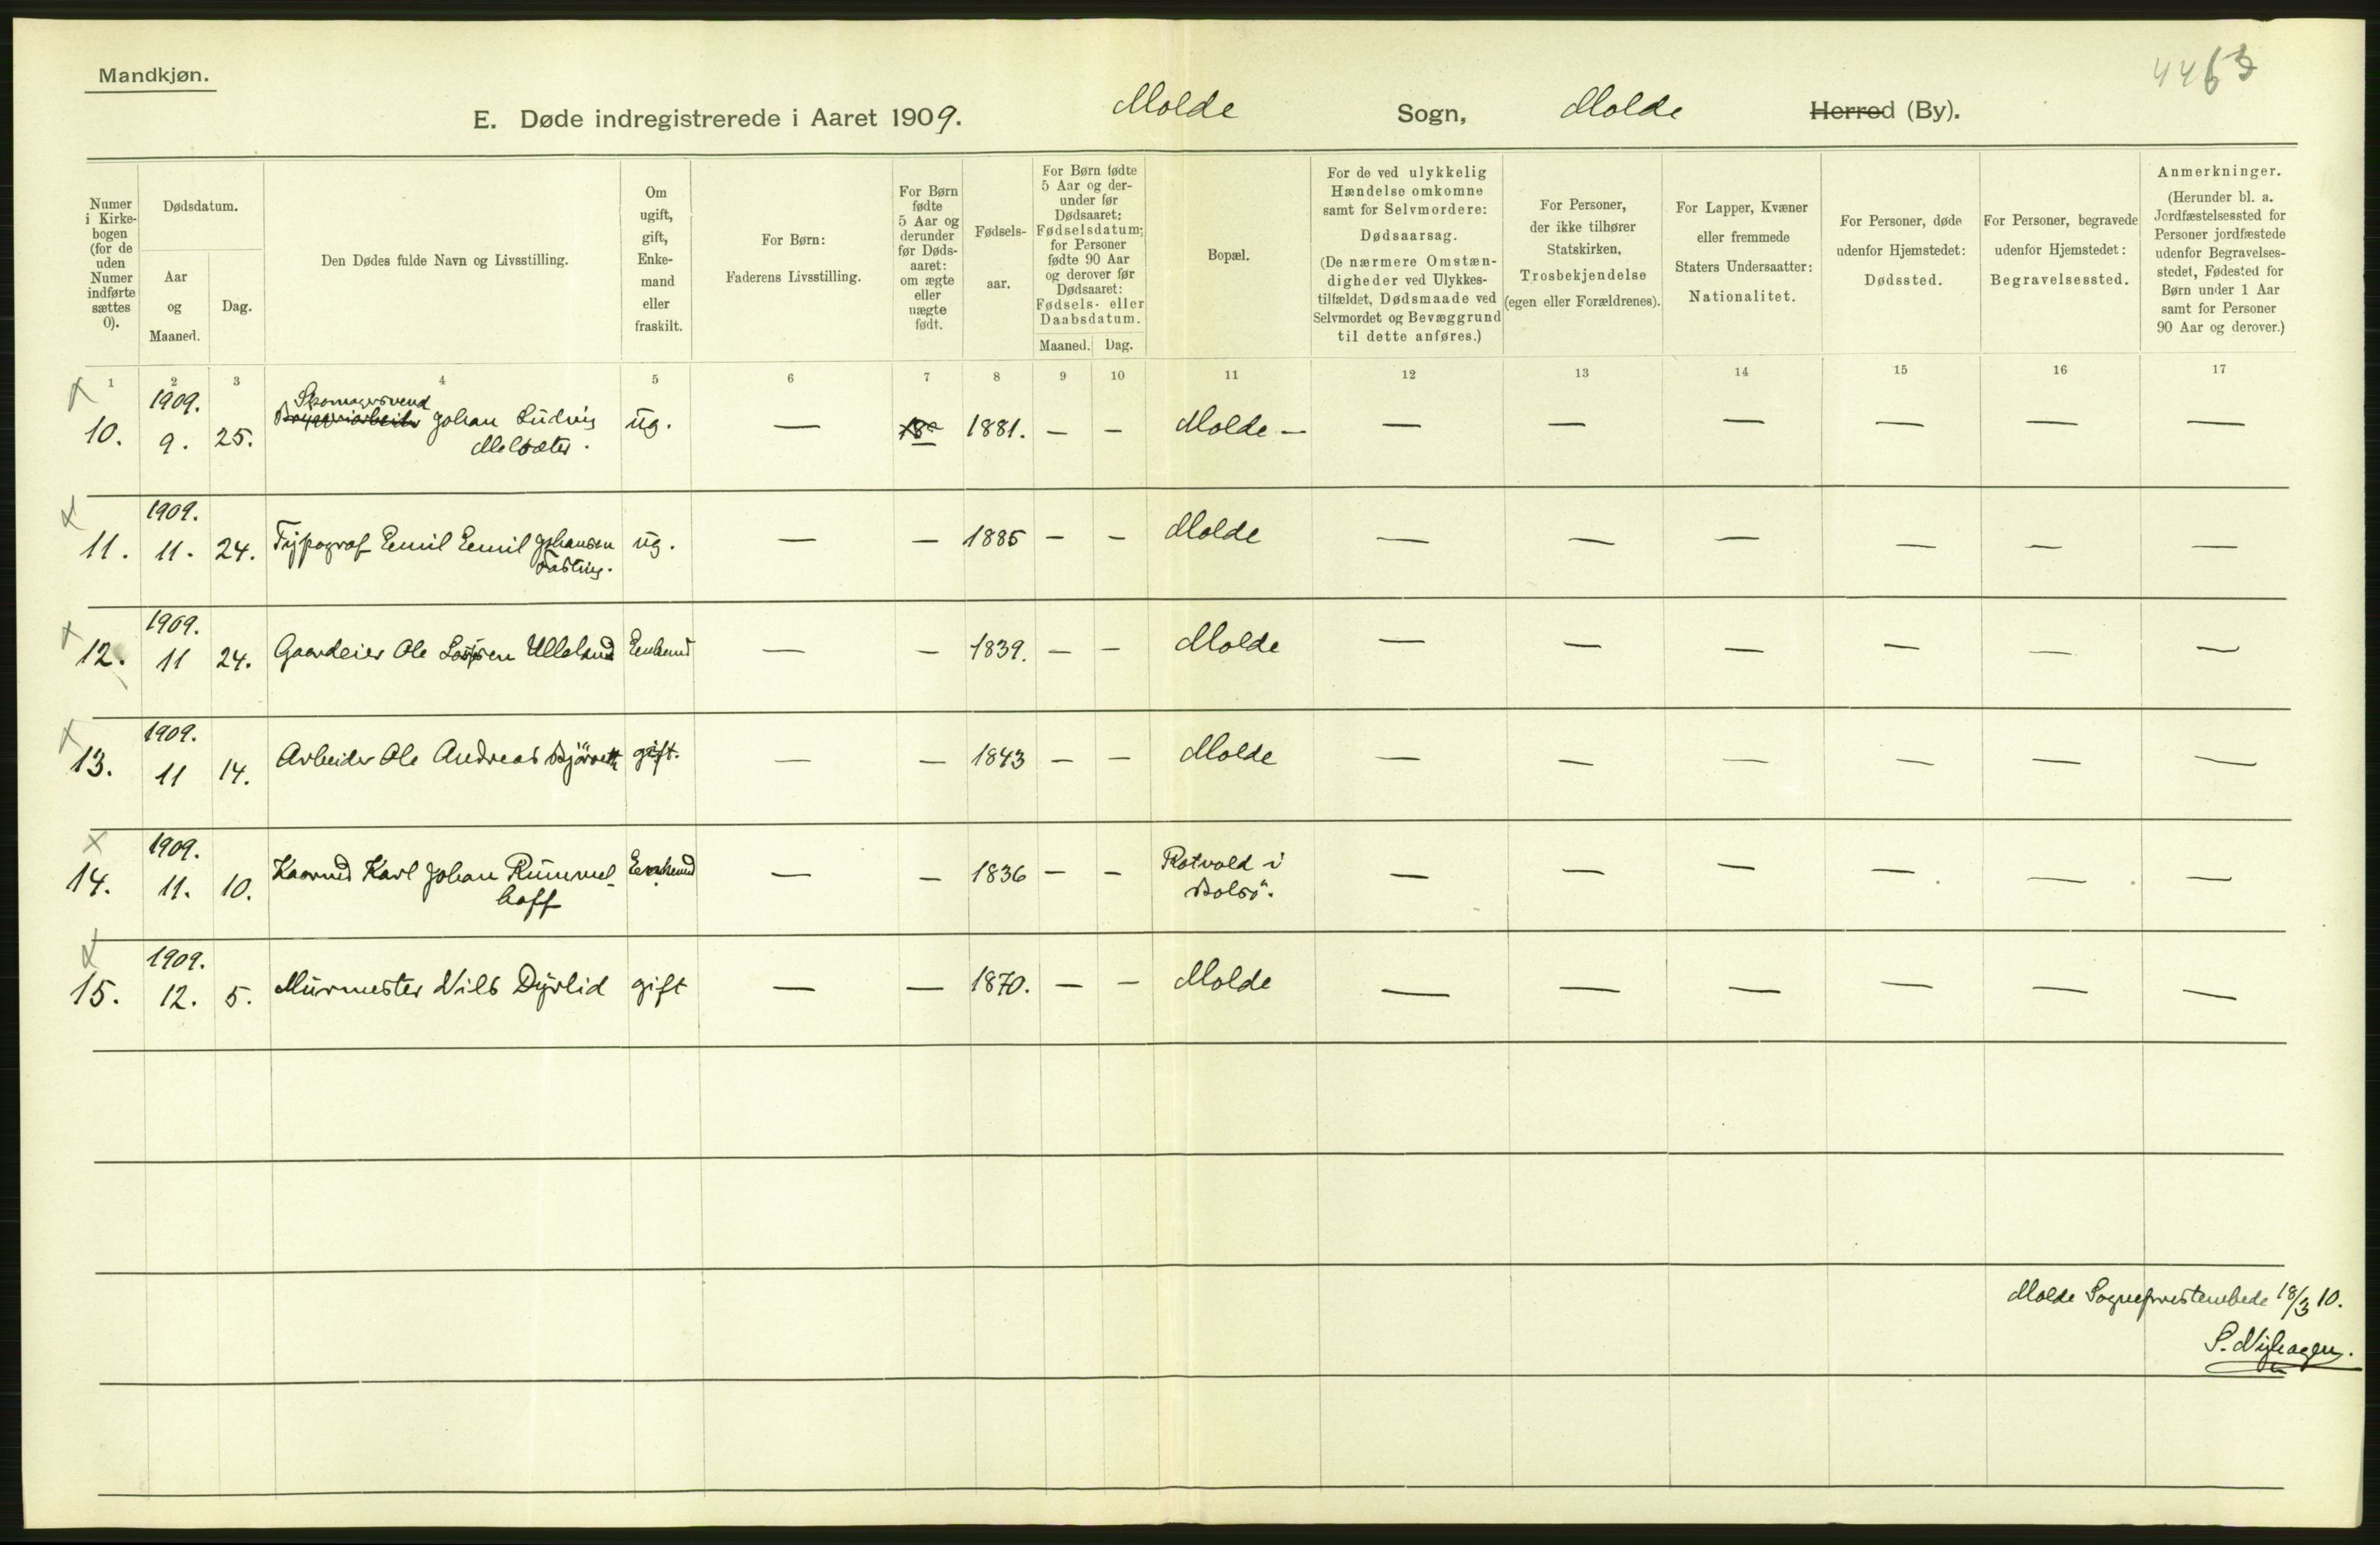 Mandkjøn.
4463
E. Døde indregistrerede i Aaret 1909. Molde Sogn, Molde Herred (By).
Numer i Kirkebogen (for de uden Numer indførte sættes 0).
Dødsdatum.
Aar og Maaned.
Dag.
Den Dødes fulde Navn og Livsstilling.
Om ugift, gift, Enkemand eller fraskilt.
For Børn:
Faderens Livsstilling.
For Børn fødte 5 Aar og derunder før Dødsaaret: om ægte eller uægte født.
Fødselsaar.
For Børn fødte 5 Aar og derunder før Dødsaaret: Fødselsdatum; for Personer fødte 90 Aar og derover før Dødsaaret: Fødsels- eller Daabsdatum.
Maaned. Dag.
Bopæl.
For de ved ulykkelig Hændelse omkomne samt for Selvmordere:
Dødsaarsag.
(De nærmere Omstændigheder ved Ulykkestilfældet, Dødsmaade ved Selvmordet og Bevæggrund til dette anføres.)
For Personer, der ikke tilhører Statskirken,
Trosbekjendelse
(egen eller Forældrenes).
For Lapper, Kvæner eller fremmede Staters Undersaatter:
Nationalitet.
For Personer, døde udenfor Hjemstedet:
Dødssted.
For Personer, begravede udenfor Hjemstedet:
Begravelsessted.
Anmerkninger.
(Herunder bl. a. Jordfæstelsessted for Personer jordfæstede udenfor Begravelsesstedet, Fødested for Børn under 1 Aar samt for Personer 90 Aar og derover.)
1 2 3 4 5 6 7 8 9 10 11 12 13 14 15 16 17
1909. Skomagersvend
10. 9. 25. Johan Ludvig ug. — 1881. — — Molde — — — — — — —
1909.
11. 11. 24. Typograf Emil Emil Johansen ug. — — 1885 — — Molde — — — — — —
Fasting.
1909.
12. 11 24. Gaardeier Ole Ulleland Enkemd — — 1839. — — Molde — — — — — —
1909.
13. 11 14. Arbeider Ole Andreas gift. — — 1843 — — Molde — — — — — —
1909.
14. 11. 10. Karl Johan Rummel- Enkemd — — 1836 — — Rotvold i — — — — — —
hoff Bolsö.
1909.
15. 12. 5. Murmester Nils Dyrlid gift — — 1870. — — Molde — — — — — —
Molde Sogneprestembede 18/3 10.
S. Nyhagen.